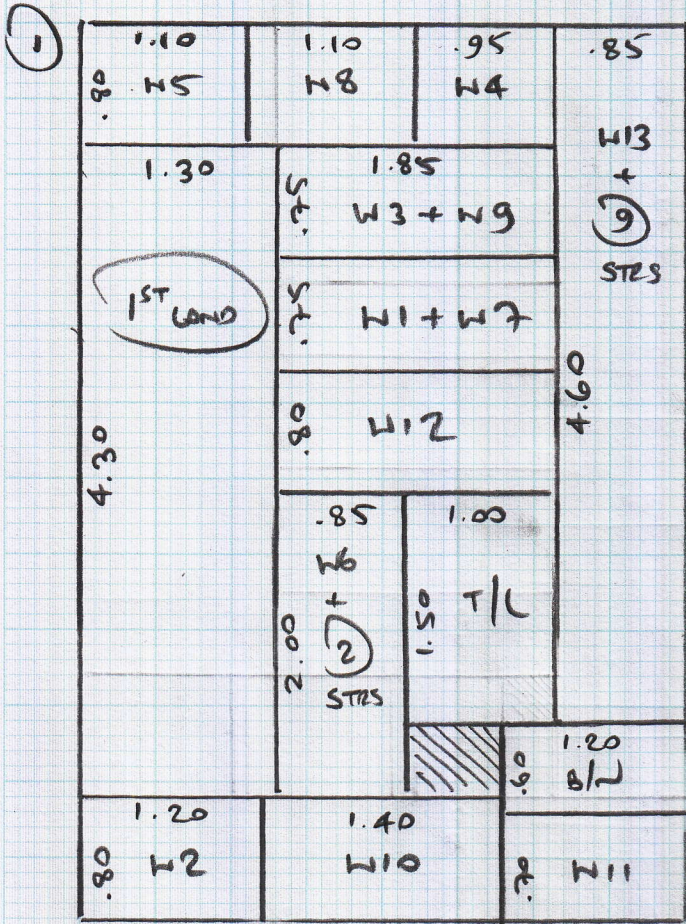 1
1.10
.80
W5
1.10
W8
.95
W4
.85
W13
+
9
STRS
4.60
1.30
1ST LAND
4.30
1.85
.75
W3 + W9
.75
W1 + W7
.80
W12
.85
W6
+
2
STRS
2.00
1.00
1.50
T/L
1.20
.60
B/W
1.20
.80
W2
1.40
W10
.70
W11